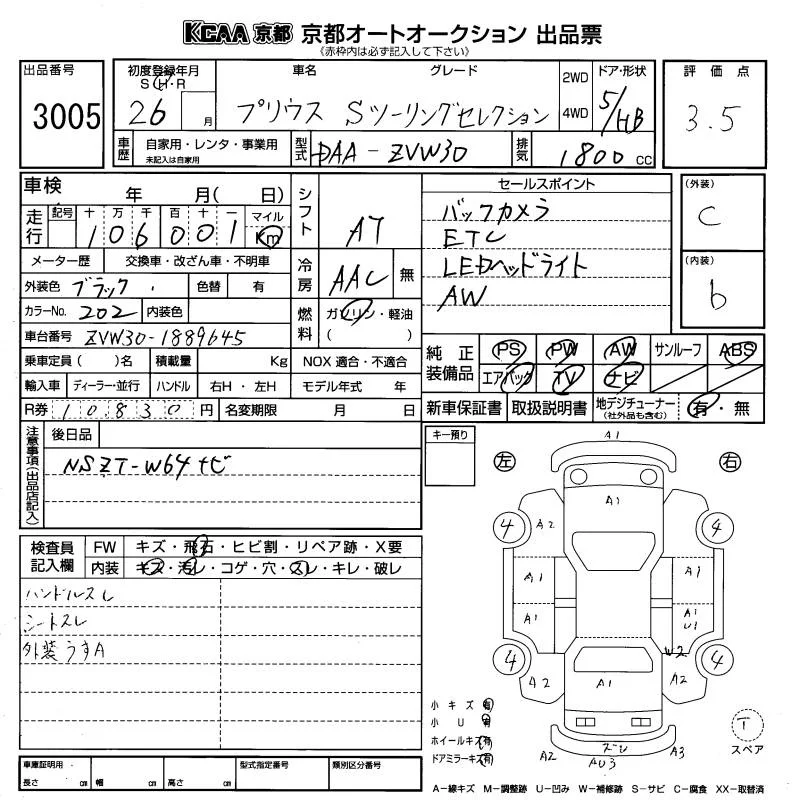 KCAA 京都 京都オートオークション 出品票
《赤枠内は必ず記入して下さい》
出品番号
3005
初度登録年月
S・H・R
26 月
車名 グレード
プリウス Sツーリングセレクション
2WD
4WD
ドア・形状
5/HB
評価点
3.5
車歴
自家用・レンタ・事業用
未記入は自家用
型式
DAA-ZVW30
排気
1800 cc
車検 年 月( 日)
走行
記号 十 万 千 百 十 一 マイル
106001 Km
シフト
AT
メーター歴 交換車・改ざん車・不明車
外装色 ブラック 色替 有
冷房
AAC 無
カラーNo. 202 内装色
燃料
ガソリン・軽油
( )
車台番号 ZVW30-1889645
乗車定員 ( )名 積載量 Kg NOX 適合・不適合
輸入車 ディーラー・並行 ハンドル 右H・左H モデル年式 年
R券 10830円 名変期限 月 日
セールスポイント
バックカメラ
ETC
LEDヘッドライト
AW
(外装)
C
(内装)
b
純正装備品
PS PW AW サンルーフ ABS
エアバック TV ナビ
新車保証書 取扱説明書 地デジチューナー
(社外品も含む)
有・無
注意事項(出品店記入)
後日品
NSZT-W64ナビ
キー預り
左 右
A1
A1
4 A2 4
A1 A1
A1 A1
U1
4 W2 4
A2 A1 A2
検査員記入欄
FW キズ・飛石・ヒビ割・リペア跡・X要
内装 キズ・汚レ・コゲ・穴・スレ・キレ・破レ
ハンドルスレ
シートスレ
外装うすA
小キズ 有
小U 有
ホイールキズ 有
ドアミラーキズ 有
A2 AU3 A3
T
スペア
車庫証明用
長さ cm 幅 cm 高さ cm
型式指定番号 類別区分番号
A−線キズ M−調整跡 U−凹み W−補修跡 S−サビ C−腐食 XX−取替済